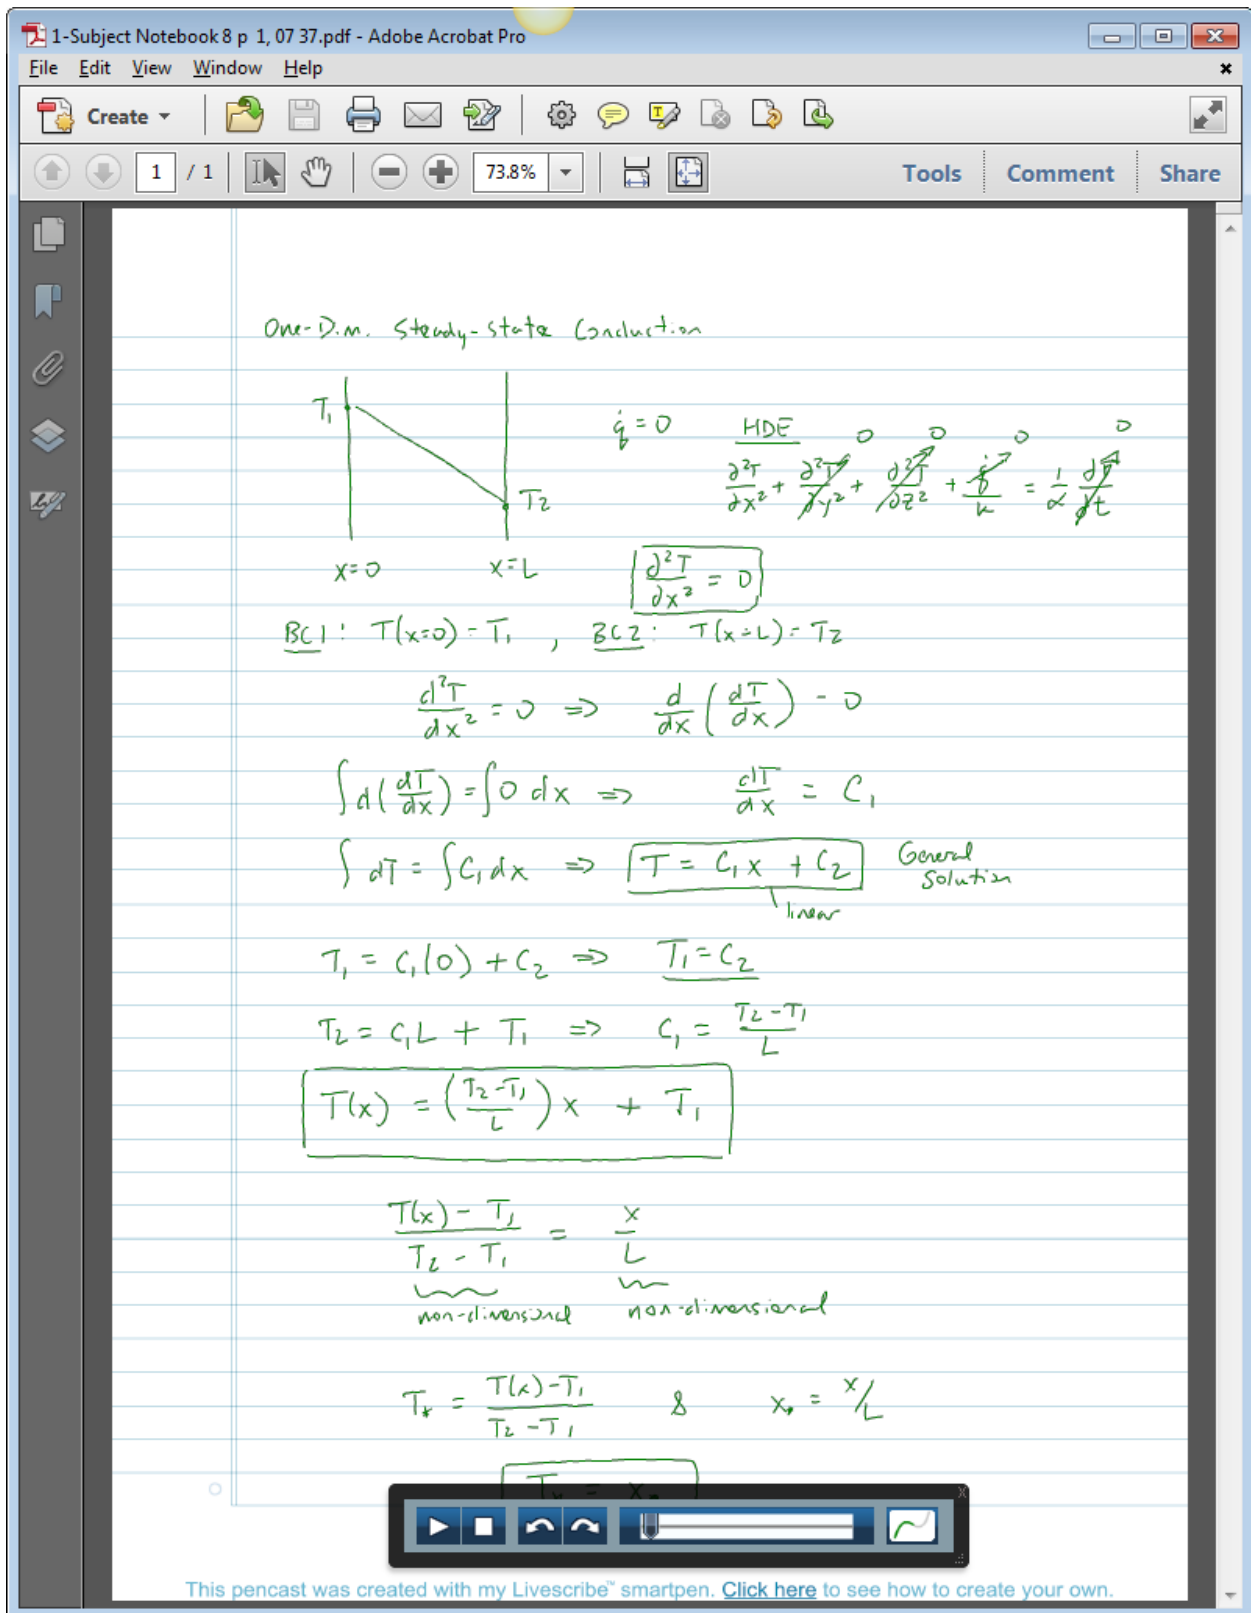 1-Subject Notebook 8 p 1, 07 37.pdf - Adobe Acrobat Pro
File Edit View Window Help
Create
1 / 1 73.8% Tools Comment Share
One-Dim. Steady-State Conduction
T₁ q̇ = 0 HDE 0 0 0 0
∂²T/∂x² + ∂²T/∂y² + ∂²T/∂z² + q̇/k = 1/α ∂T/∂t
T₂
x=0 x=L ∂²T/∂x² = 0
BC1: T(x=0) = T₁ , BC2: T(x=L) = T₂
d²T/dx² = 0 ⇒ d/dx (dT/dx) = 0
∫ d(dT/dx) = ∫ 0 dx ⇒ dT/dx = C₁
∫ dT = ∫ C₁ dx ⇒ T = C₁x + C₂ General Solution
linear
T₁ = C₁(0) + C₂ ⇒ T₁ = C₂
T₂ = C₁L + T₁ ⇒ C₁ = (T₂ - T₁)/L
T(x) = ((T₂ - T₁)/L) x + T₁
(T(x) - T₁)/(T₂ - T₁) = x/L
non-dimensional non-dimensional
T* = (T(x) - T₁)/(T₂ - T₁) & x* = x/L
T* = x*
x
This pencast was created with my Livescribe™ smartpen. Click here to see how to create your own.